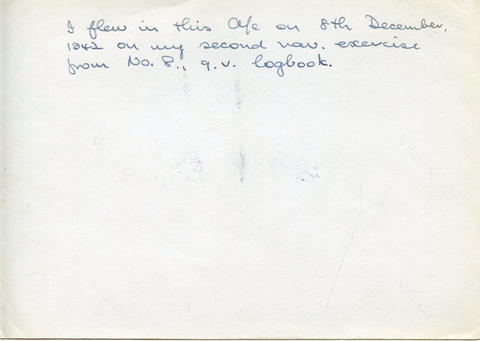 I flew in this A/c on 8th December,
1942 on my second nav. exercise
from No. 8., q.v. logbook.